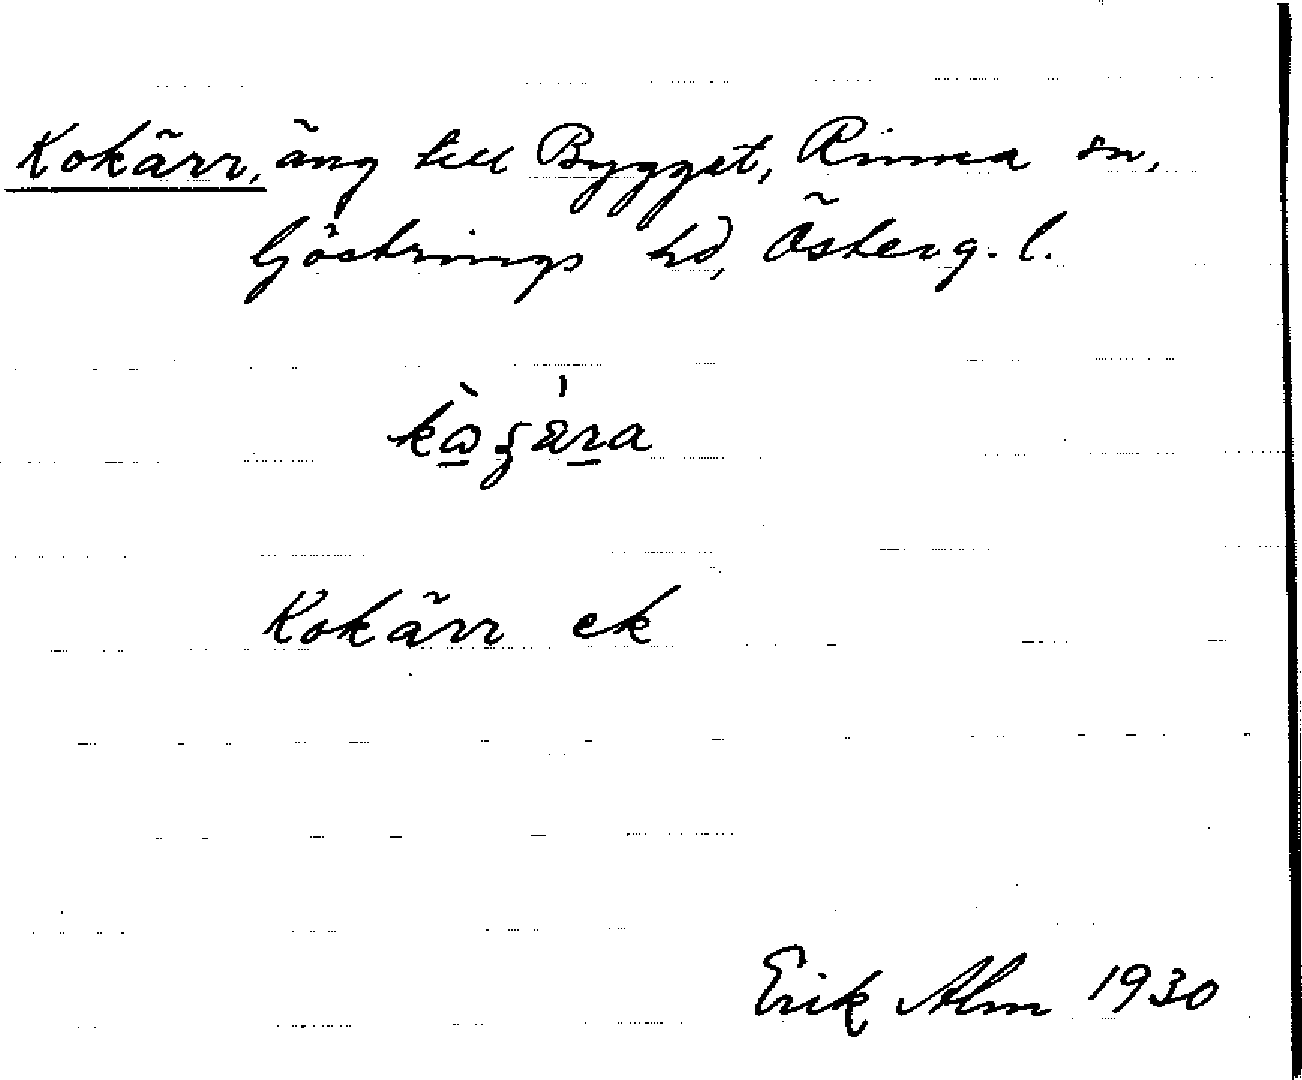 Kokärr, äng till Bygget, Rinna sn,
Göstrings hd, Österg. l.
Kokärr ek
Erik Alm 1930